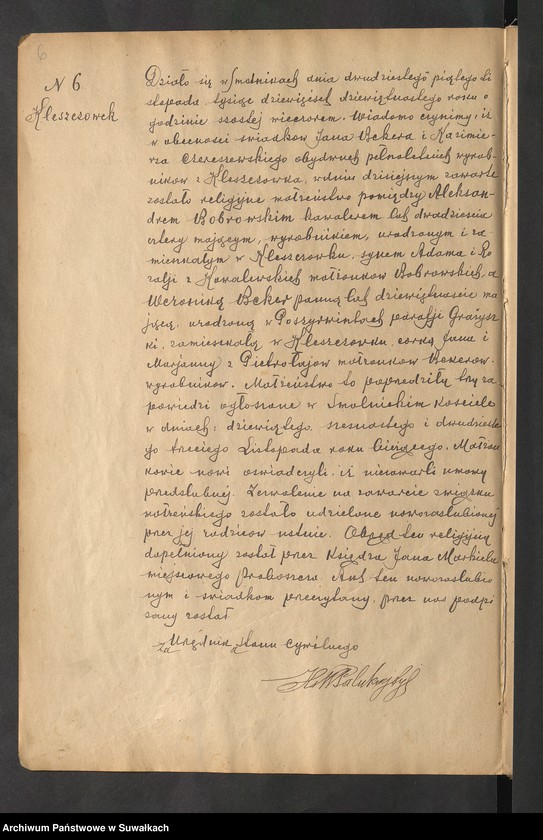 6
N 6
Kleszczówek
Działo się w Smolnikach dnia dwudziestego piątego Li
stopada tysiąc dziewięćset dziewiętnastego roku o
godzinie szóstej wieczorem. Wiadomo czynimy, iż
w obecności świadków Jana Bekera i Kazimie-
rza Czereszewskiego obydwuch pełnoletnich wyrob-
ników z Kleszczówka, w dniu dzisiejszym zawarte
zostało religijne małżeństwo pomiędzy Aleksan-
drem Bobrowskim kawalerem lat dwadzieścia
cztery mającym, wyrobnikiem, urodzonym i za-
mieszkałym w Kleszczówku, synem Adama i Ro
zalji z Kowalewskich małżonków Bobrowskich, a
Weroniką Beker panną lat dziewiętnaście ma
jącą, urodzoną w Poszyrwintach parafji Grażysz
ki, zamieszkałą w Kleszczówku, córką Jana i
Marjanny z Pietrołajów małżonków Bekerów.
wyrobników. Małżeństwo to poprzedziły trzy za
powiedzi ogłoszone w Smolnickim Kościele
w dniach: dziewiątego, szesnastego i dwudzieste
go trzeciego Listopada roku bieżącego. Małżon
kowie nowi oświadczyli, iż niezawarli umowy
przedślubnej. Zezwolenie na zawarcie związku
małżeńskiego zostało udzielone nowozaślubionej
przez jej rodziców ustnie. Obrzęd ten religijny
dopełniony został przez Księdza Jana Markiela
miejscowego Proboszcza. Akt ten nowozaślubio
nym i świadkom przeczytany, przez nas podpi
sany został
za Urzędnika Stanu Cywilnego
Archiwum Państwowe w Suwałkach